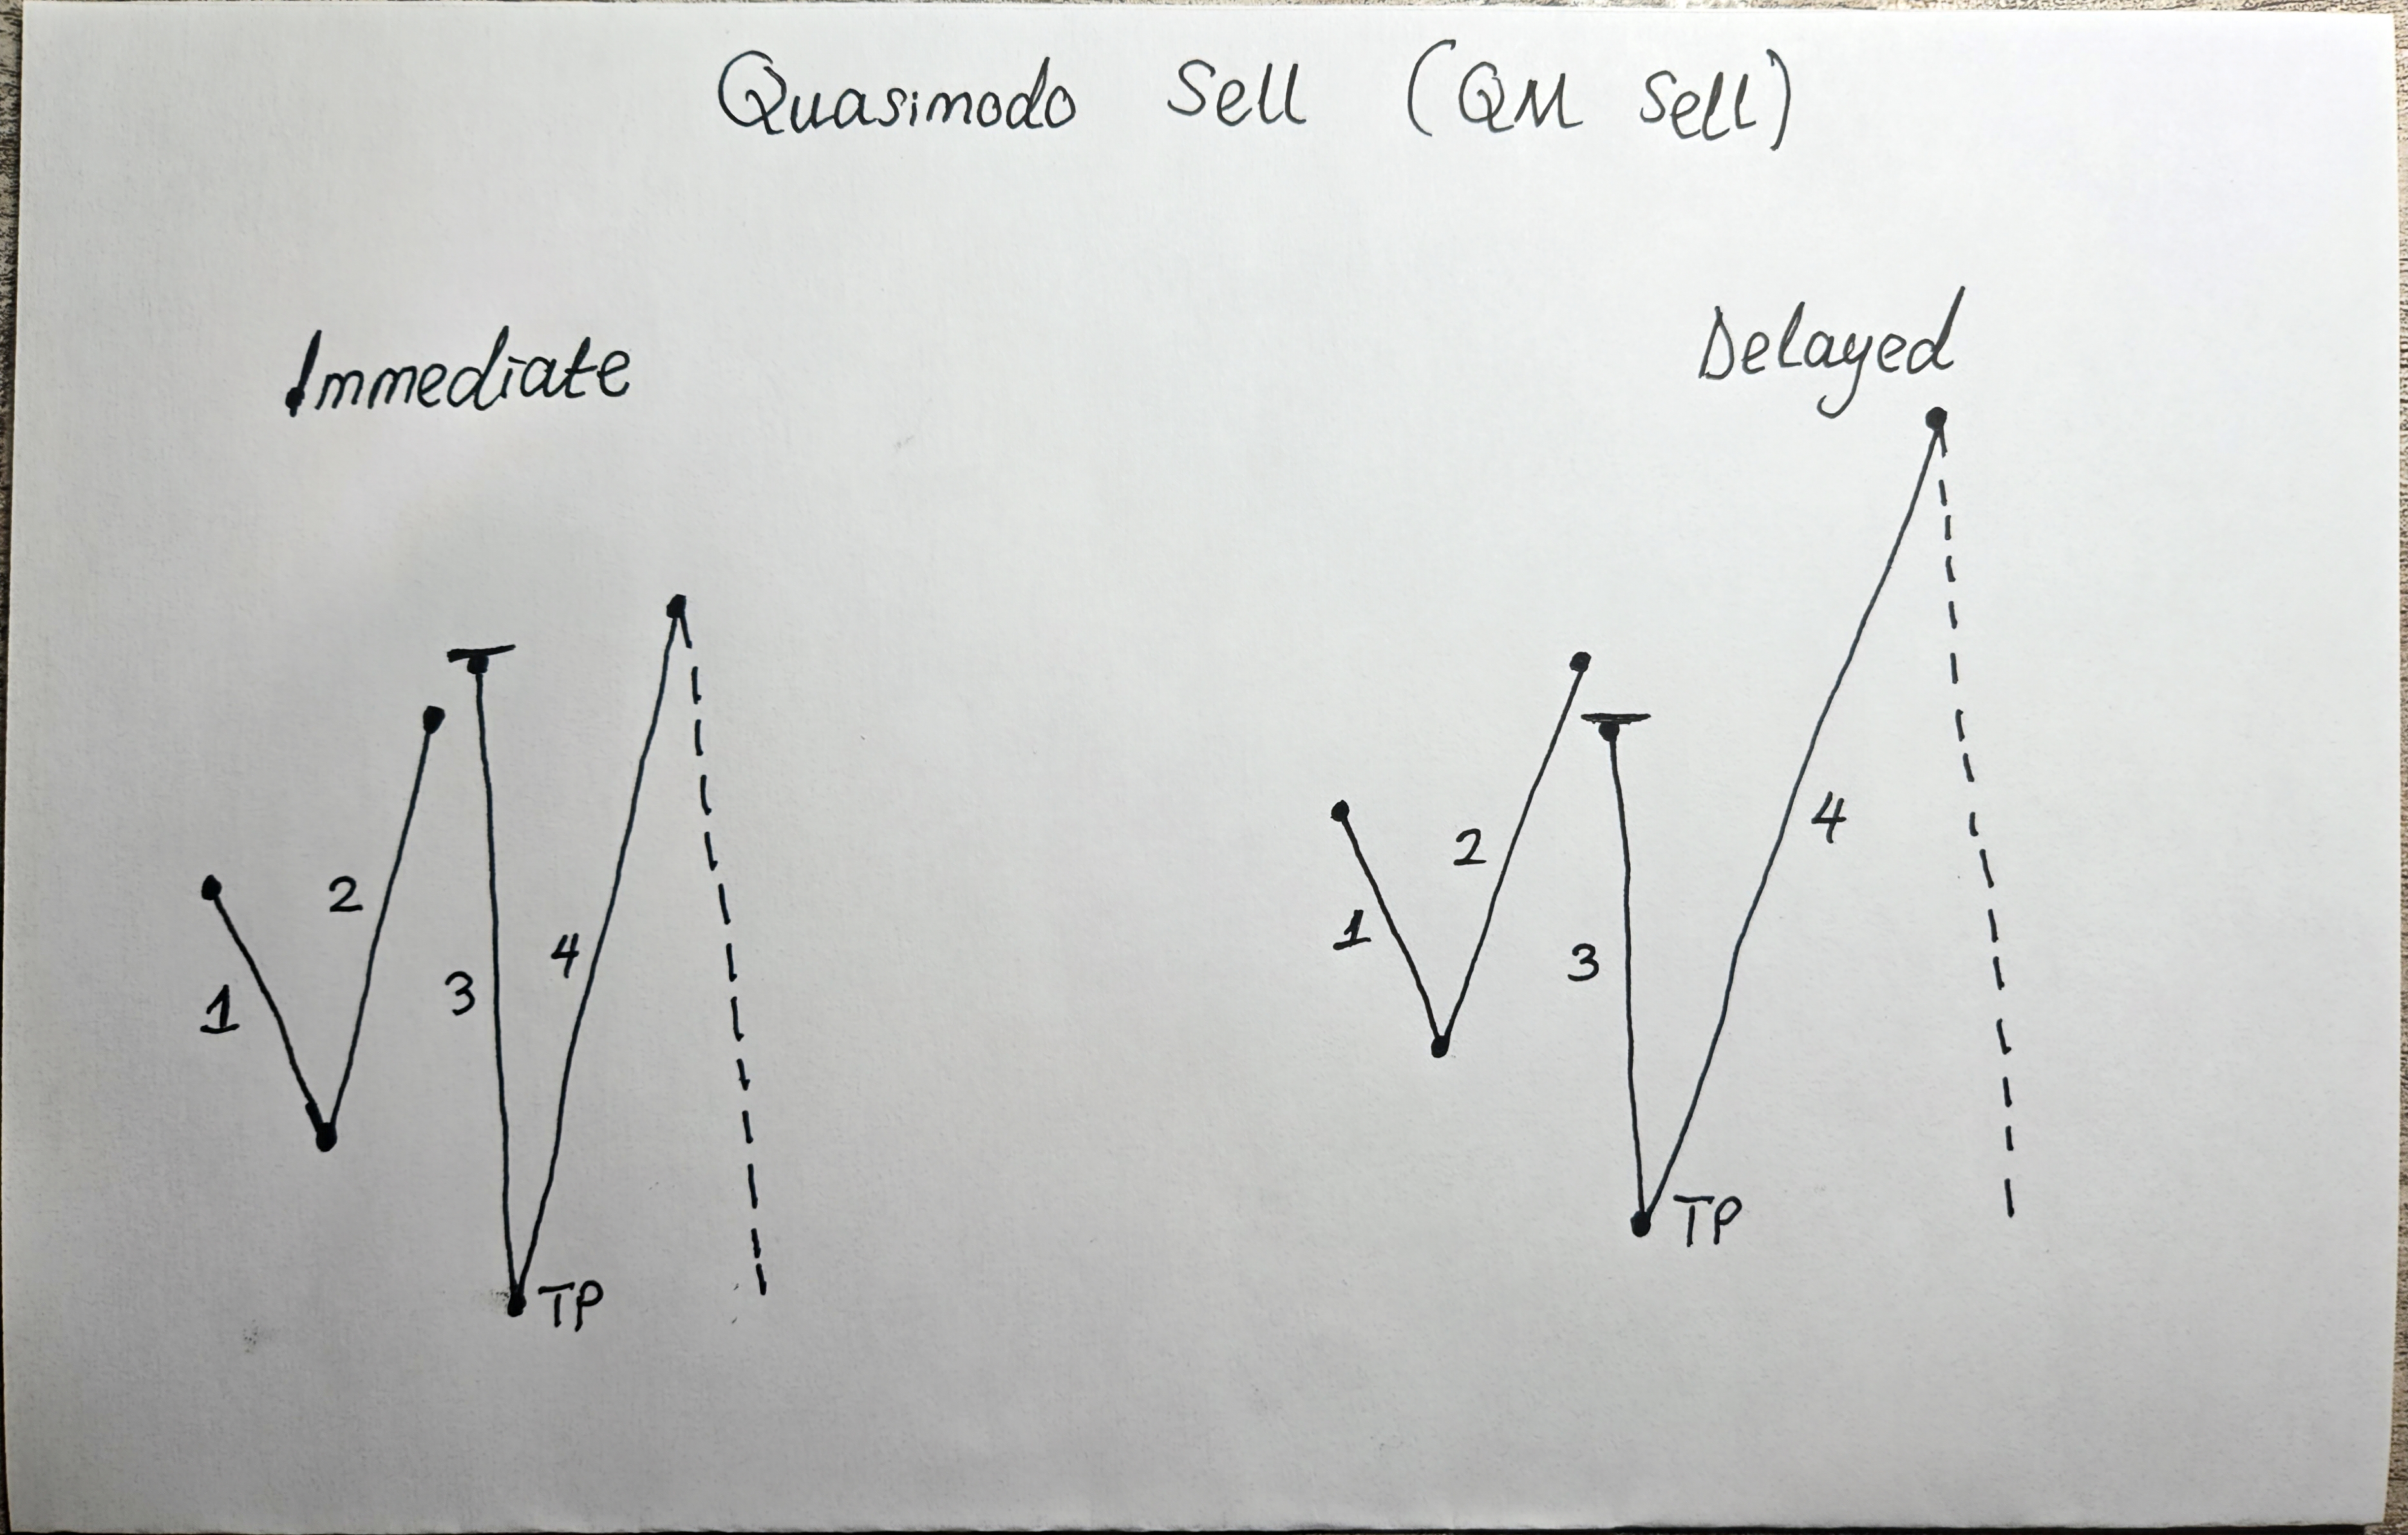 Quasimodo Sell (QM Sell)
Immediate
1
2
3
4
TP
Delayed
1
2
3
4
TP